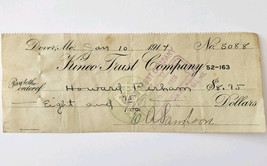 Dover, Me. Jan 10 1917 No. 5088
Kineo Trust Company 52-163
Pay to the order of Howard Perham $8.75
Eight and 75/100 Dollars
E A Sampson